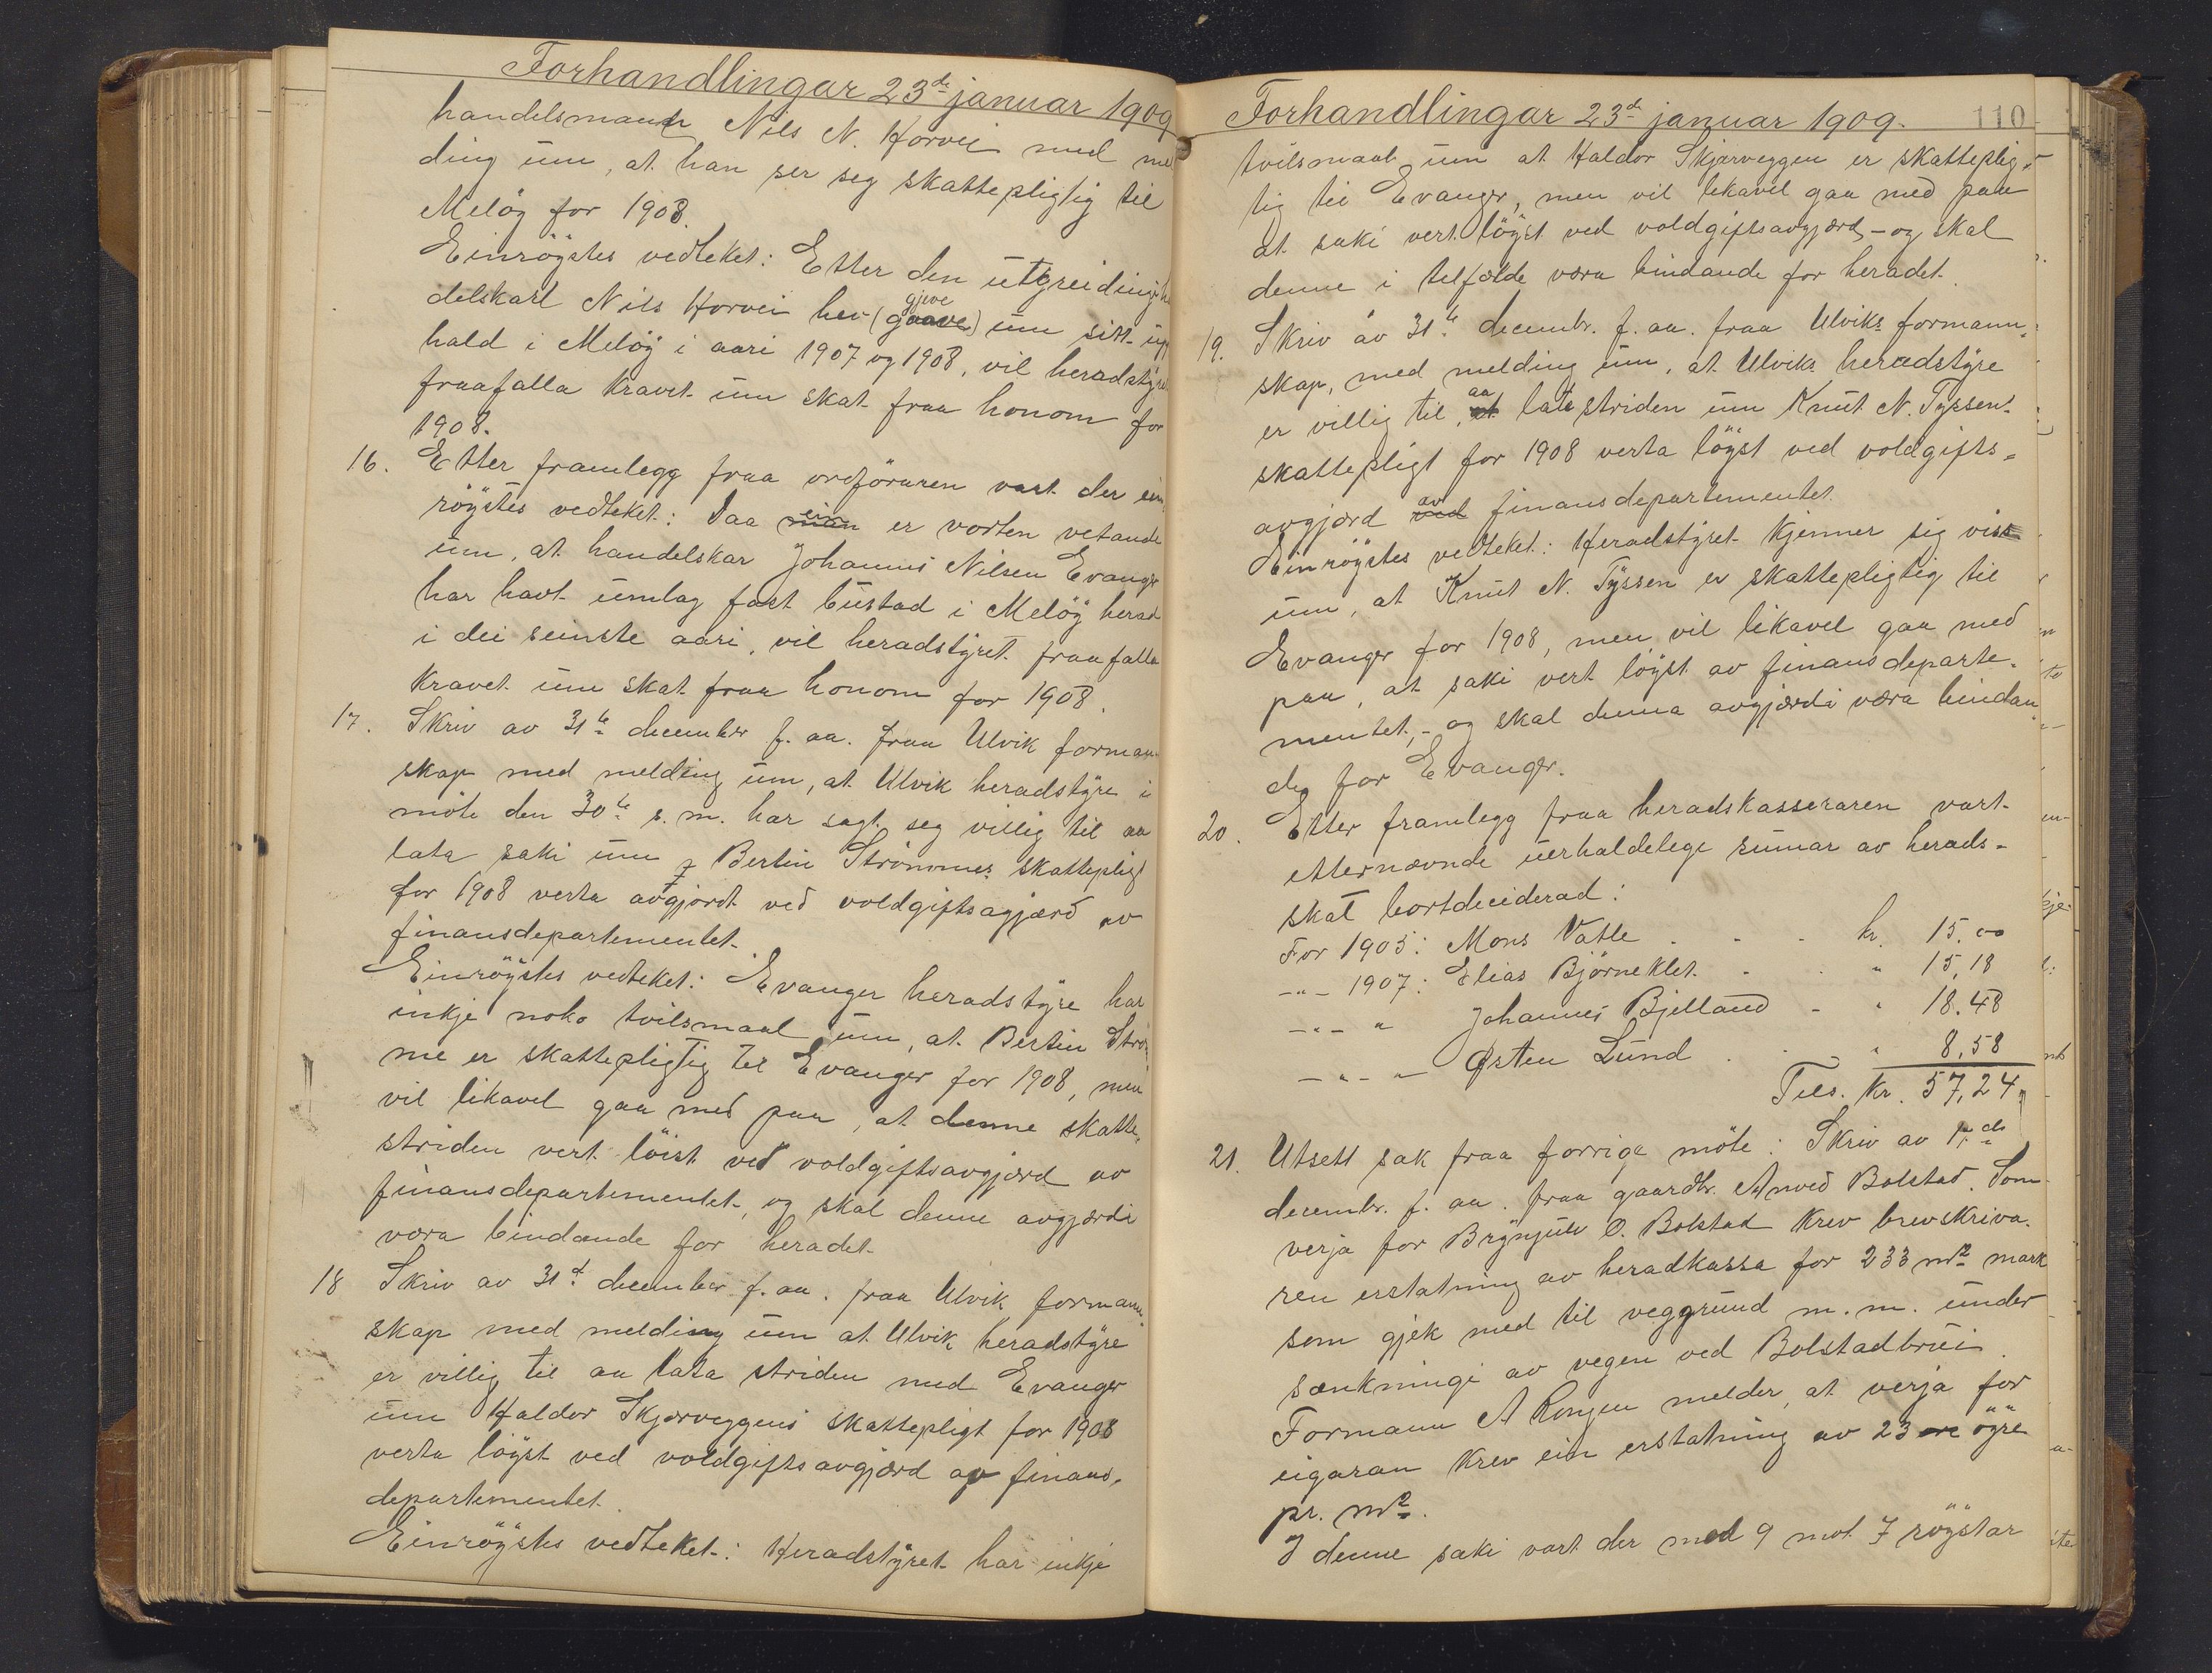 Forhandlingar 23de januar 1909
handelsmann Nils N. Horvei med mel
ding um, at han ser seg skattepligtig til
Meløy for 1908.
Einröystes vedteket: Etter den utgreiding
delskarl Nils Horvei hev (gjeve) um sitt up
hald i Meløy i aari 1907 og 1908, vil heradstyre
fraafalla kravet um skat fraa honom for
1908.
16. Etter framlegg fraa ordföraren vart der ein
röystes vedteket: Daa ein er vorten vetande
um, at handelskar Johannes Nilsen Evanger
har havt umlag fast bustad i Melöy herad
i dei seinste aari, vil heradstyret fraafalla
kravet um skat fraa honom for 1908.
17. Skriv av 31te december f. aa. fraa Ulvik forman
skap med melding um, at Ulvik heradstyre i
möte den 30te s. m. har sagt seg villig til aa
lata saki um Bertin Strömmes skattepligt
for 1908 verta avgjordt ved voldgiftsagjærd av
finansdepartementet.
Einröystes vedteket: Evanger heradstyre har
inkje noko tvilsmaal um, at Bertin Ström
me er skattepligtig til Evanger for 1908, men
vil likavel gaa med paa, at denne skatte-
striden vert löist ved voldgiftsavgjærd av
finansdepartementet, og skal denne avgjærdi
væra bindande for heradet.
18 Skriv av 31te december f. aa. fraa Ulvik formann
skap med melding um at Ulvik heradstyre
er villig til aa lata striden med Evanger
um Haldor Skjærveggens skattepligt for 1908
verta löyst ved voldgiftsavgjærd av finans-
departementet.
Einröystes vedteket: Heradstyret har inkje
Forhandlingar 23de januar 1909. 110
tvilsmaal um at Haldor Skjærveggen er skatteplig-
tig til Evanger, men vil likavel gaa med paa
at saki vert löyst ved voldgiftsavgjærd, - og skal
denne i tilfælde væra bindande for heradet.
19. Skriv av 31te decembr. f. aa. fraa Ulviks formann-
skap, med melding um, at Ulviks heradstyre
er villig til, aa lata striden um Knut N. Tyssen
skattepligt for 1908 verta löyst ved voldgifts-
avgjærd av finansdepartementet.
Einröystes vedteket: Heradstyret kjenner sig viss
um, at Knut N. Tyssen er skattepligtig til
Evanger for 1908, men vil likavel gaa med
paa, at saki vert löyst av finansdeparte-
mentet, - og skal denna avgjærdi væra bindan
de for Evanger.
20. Etter framlegg fraa heradskasseraren vart
etternævnde uerhaldelege summar av herads-
skat bortdeciderad:
For 1905: Mons Vatle kr. 15.00
-"- 1907: Elias Björneklet " 15,18
-"- " Johannes Bjelland " 18.48
-"- " Østen Lund " 8,58
Tils. kr. 57,24
21. Utsett sak fraa forrige möte: Skriv av 1ste
decembr. f. aa. fraa gaardbr. Anved Bolstad. Som
verja for Brynjulv O. Bolstad krev brevskriva-
ren erstatning av heradkassa for 233 m2 mark
som gjek med til veggrund m. m. under
sænkningi av vegen ved Bolstadbrui.
Formann A Rongen melder, at verja for
eigaran krev ein erstatning av 23 øyre
pr. m2.
I denne saki vart der med 9 mot 7 röystar